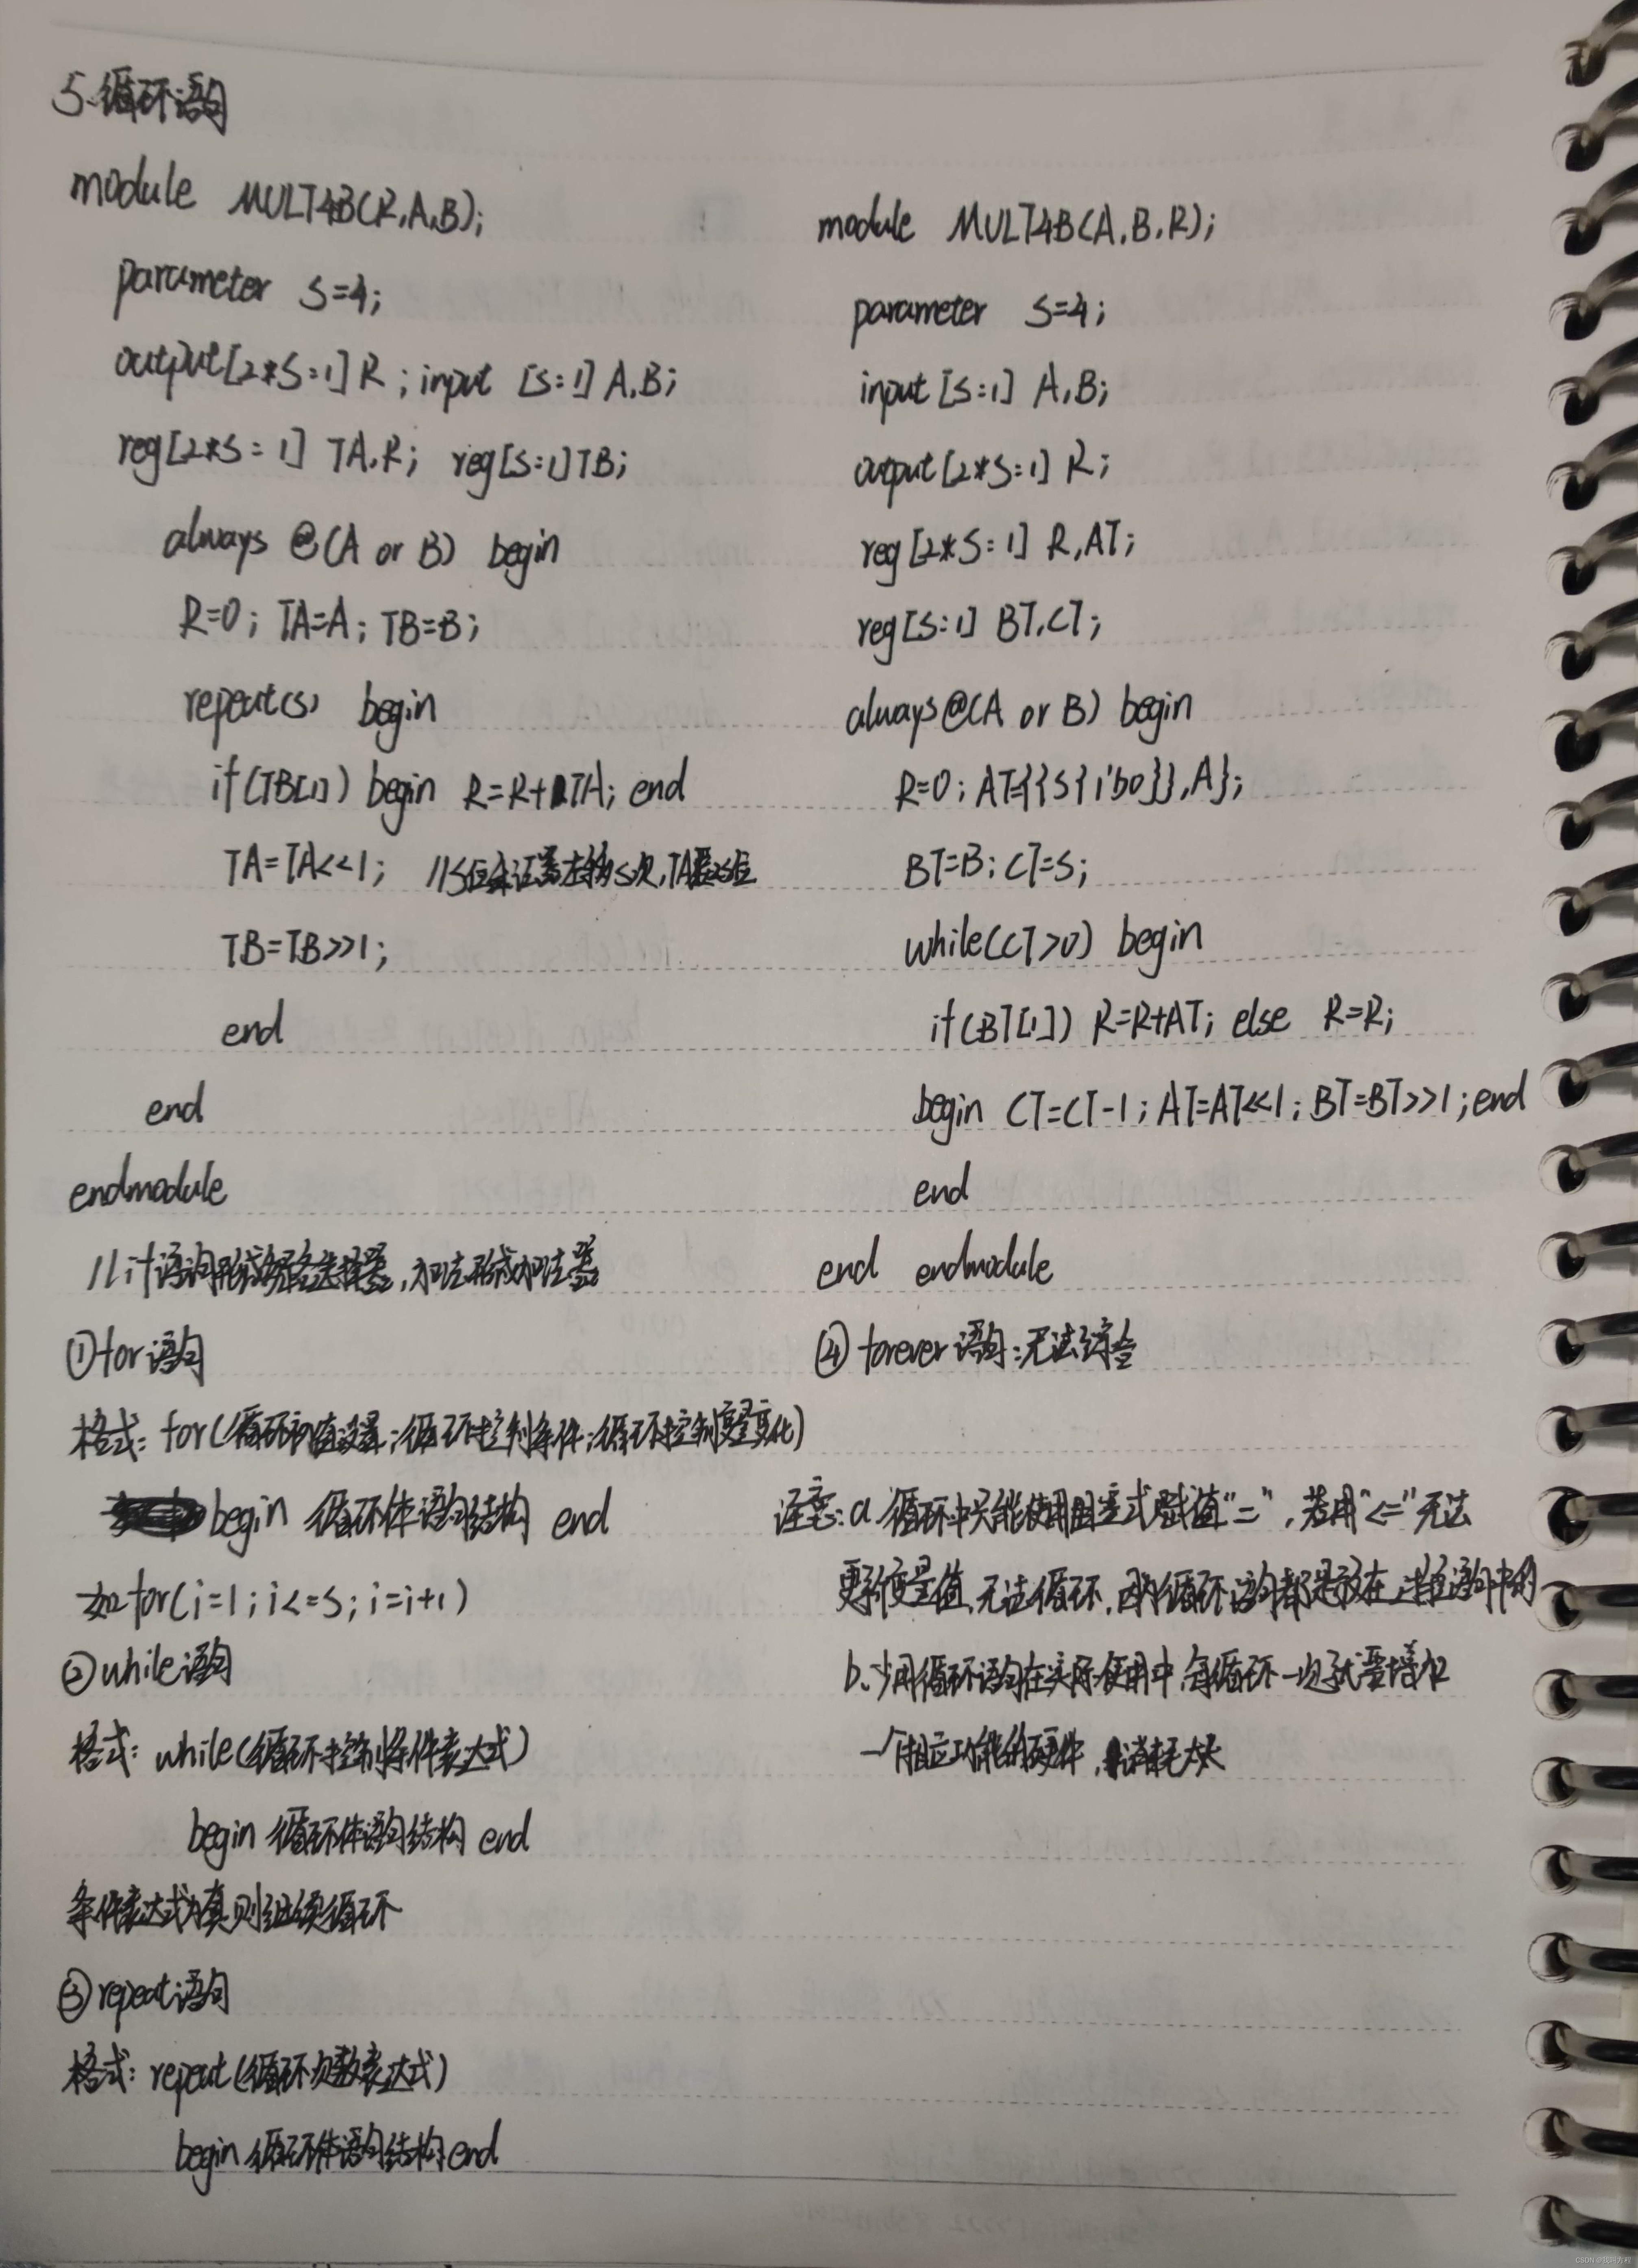 5.循环语句
module MULT4B(R,A,B);
parameter S=4;
output[2*S:1] R ; input [S:1] A,B;
reg[2*S:1] TA,R; reg[S:1]TB;
always @(A or B) begin
R=0; TA=A; TB=B;
repeat(S) begin
if(TB[1]) begin R=R+TA; end
TA=TA<<1; //S位 左移S次,TA
TB=TB>>1;
end
end
endmodule
//if语句形成多路选择器,加法形成加法器
①for语句
格式: for(循环初值设置;循环控制条件;循环控制变量变化)
begin 循环体语句结构 end
如for(i=1;i<=S;i=i+1)
②while语句
格式: while(循环控制条件表达式)
begin 循环体语句结构 end
条件表达式为真则继续循环
③repeat语句
格式: repeat(循环次数表达式)
begin 循环体语句结构 end
module MULT4B(A,B,R);
parameter S=4;
input[S:1] A,B;
output[2*S:1] R;
reg[2*S:1] R,AT;
reg[S:1] BT,CT;
always@(A or B) begin
R=0; AT={{S{1'b0}},A};
BT=B; CT=S;
while(CT>0) begin
if(BT[1]) R=R+AT; else R=R;
begin CT=CT-1; AT=AT<<1; BT=BT>>1; end
end
end endmodule
④forever语句:无法综合
注意:a.循环中只能使用阻塞式赋值"=",若用"<="无法
更新变量值,无法循环,因为循环语句都是放在过程语句中的
b.少用循环语句在实际使用中,每循环一次就要增加
一个相应功能的硬件,消耗太大